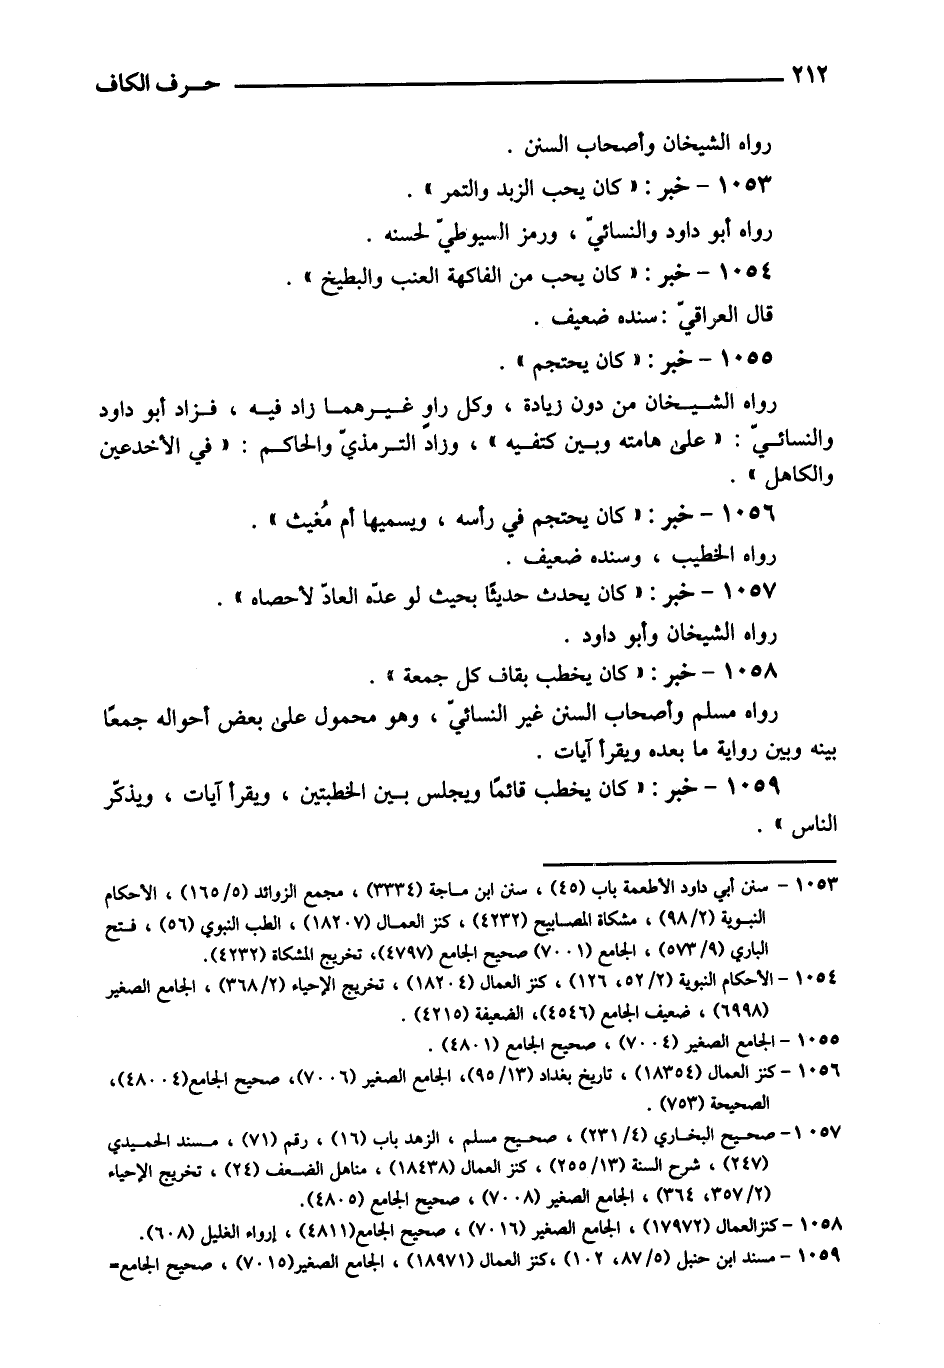 ٢١٢ حـرف الكاف
رواه الشيخان وأصحاب السنن .
١٠٥٣ – خبر : « كان يحب الزبد والتمر » .
رواه أبو داود والنسائيّ ، ورمز السيوطيّ لحسنه .
١٠٥٤ – خبر : « كان يحب من الفاكهة العنب والبطيخ » .
قال العراقيّ : سنده ضعيف .
١٠٥٥ – خبر : « كان يحتجم » .
رواه الشيـخان من دون زيادة ، وكل راوٍ غـيـرهمـا زاد فيـه ، فـزاد أبو داود
والنسائـيّ : « على هامته وبـين كتفـيه » ، وزاد التـرمذيّ والحاكـم : « في الأخدعين
والكاهل » .
١٠٥٦ – خبر : « كان يحتجم في رأسه ، ويسميها أم مُغيث » .
رواه الخطيب ، وسنده ضعيف .
١٠٥٧ – خبر : « كان يحدث حديثًا بحيث لو عدّه العادّ لأحصاه » .
رواه الشيخان وأبو داود .
١٠٥٨ – خبر : « كان يخطب بقاف كل جمعة » .
رواه مسلم وأصحاب السنن غير النسائيّ ، وهو محمول على بعض أحواله جمعًا
بينه وبين رواية ما بعده ويقرأ آيات .
١٠٥٩ – خبر : « كان يخطب قائمًا ويجلس بـين الخطبتين ، ويقرأ آيات ، ويذكّر
الناس » .
١٠٥٣ – سنن أبي داود الأطعمة باب (٤٥) ، سنن ابن مـاجة (٣٣٣٤) ، مجمع الزوائد (١٦٥/٥) ، الأحكام
النبـوية (٩٨/٢) ، مشكاة المصابيح (٤٢٣٢) ، كنز العمـال (١٨٢٠٧) ، الطب النبوي (٥٦) ، فـتح
الباري (٥٧٣/٩) ، الجامع (٧٠٠١) صحيح الجامع (٤٧٩٧)، تخريج المشكاة (٤٢٣٢).
١٠٥٤ – الأحكام النبوية (٥٢/٢، ١٢٦) ، كنز العمال (١٨٢٠٤) ، تخريج الإحياء (٣٦٨/٢) ، الجامع الصغير
(٦٩٩٨) ، ضعيف الجامع (٤٥٤٦)، الضعيفة (٤٢١٥) .
١٠٥٥ – الجامع الصغير (٧٠٠٤) ، صحيح الجامع (٤٨٠١) .
١٠٥٦ – كنز العمال (١٨٣٥٤) ، تاريخ بغداد (٩٥/١٣)، الجامع الصغير (٧٠٠٦)، صحيح الجامع(٤٨٠٠٤)،
الصحيحة (٧٥٣) .
١٠٥٧ – صحيح البخـاري (٢٣١/٤) ، صحيـح مسلم ، الزهد باب (١٦) ، رقم (٧١) ، مـسند الحمـيدي
(٢٤٧) ، شرح السنة (٢٥٥/١٣) ، كنز العمال (١٨٤٣٨) ، مناهل الضـعف (٢٤) ، تخريج الإحياء
(٣٥٧/٢، ٣٦٤) ، الجامع الصغير (٧٠٠٨) ، صحيح الجامع (٤٨٠٥).
١٠٥٨ – كنزالعمال (١٧٩٧٢) ، الجامع الصغير (٧٠١٦) ، صحيح الجامع(٤٨١١) ، إرواء الغليل (٦٠٨).
١٠٥٩ – مسند ابن حنبل (٨٧/٥، ١٠٢) ،كنز العمال (١٨٩٧١) ، الجامع الصغير(٧٠١٥) ، صحيح الجامع=